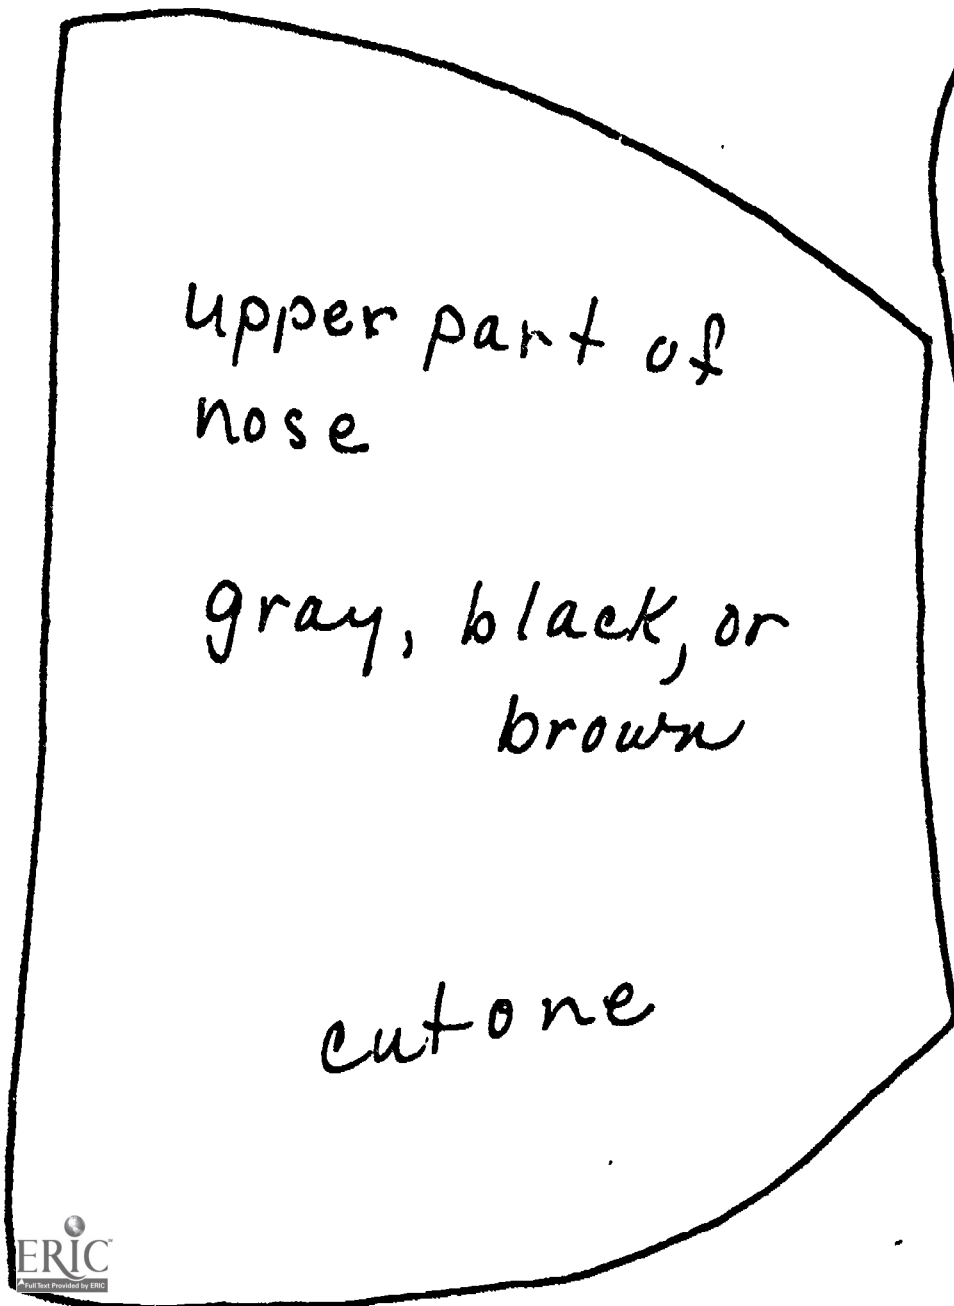 upper part of
nose
gray, black, or
brown
cut one
ERIC
Full Text Provided by ERIC